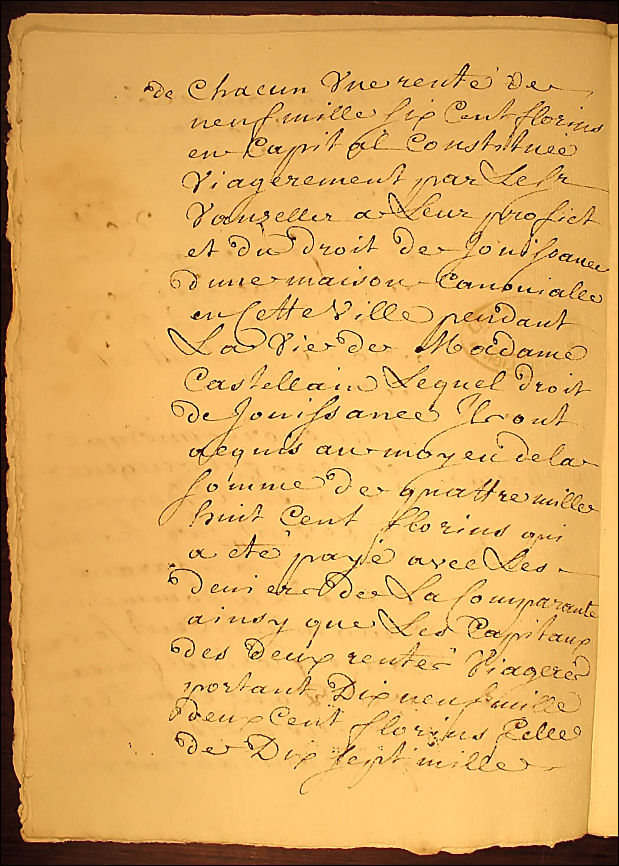 de Chacun Vne rente de
neuf mille six Cent florins
en Capital Constituée
Viagerement par Le Sr
Vanzeller a Leur profict
et du droit de Jouissance
dune maison Canonialle
en Cette Ville pendant
La Vie de Madame
Castellain Lequel droit
de Jouissance Ils ont
acquis au moyen de la
somme de quattre mille
huit Cent florins qui
a eté payé avec Les
deniers de La Comparante
ainsy que Les Capitaux
des deux rentes Viageres
portant Dix neuf mille
deux Cent florins Celle
de Dix sept mille